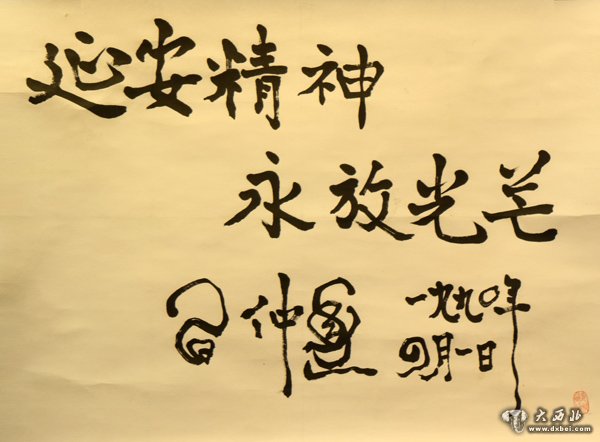 延安精神
永放光芒
习仲勋 一九九〇年
四月一日
大西北
www.dxbei.com